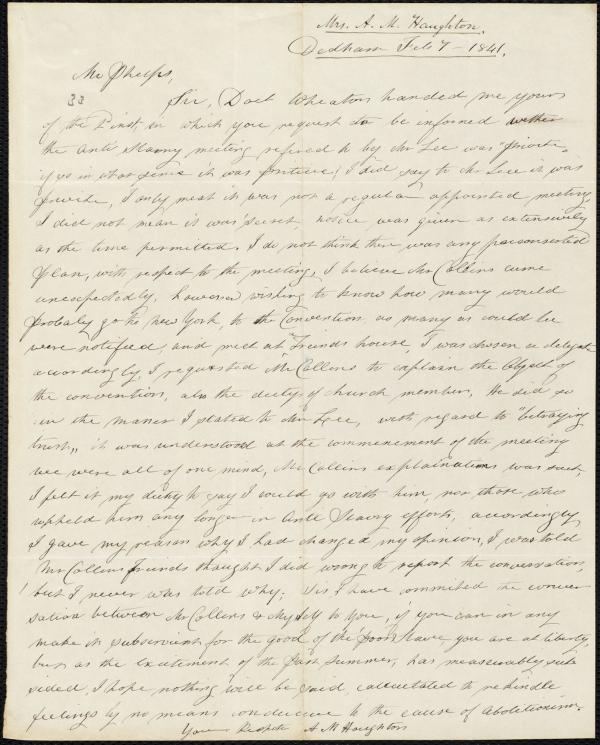 Mrs. A. M. Haughton.
Dedham Feb 7 - 1841.
Mr Phelps,
33 Sir, Doct Wheaton handed me yours
of the 2 inst, in which you request to be informed wether
the Anti Slavery meeting refered to by Mr Lee was "private"
if so in what sense it was private, I did say to Mr Lee it was
private, I only meat it was not a regular appointed meeting,
I did not mean it was secret notice was given as extensively
as the time permitted. I do not think there was any preconcerted
plan, with respect to the meeting, I believe Mr Collins came
unexpectedly, however wishing to know how many would
probaly go to New York, to the Convention as many as could be
were notified, and met at Friends house, I was chosen a delegate
accordingly, I requested Mr Collins to explain the Object of
the convention, also the duty of church members, He did so
in the maner I stated to Mr Lee, with regard to "betraying
trust", it was understood at the commencement of the meeting
we were all of one mind, Mr Collins explainations was such,
I felt it my duty to say I could go with him, nor those who
upheld him any longer in Anti Slavery efforts, accordingly
I gave my reason why I had changed my opinion, I was told
Mr Collins friends thought I did wrong to report the conversation,
but I never was told why; Sir I have commited the conver
sation between Mr Collins & Myself to you, if you can in any
make it subservient for the good of the poor Slave you are at liberty,
but as the Excitement of the past summer, has measureably sub
sided, I hope nothing will be said, calculated to rekindle
feelings by no means conducive to the cause of Abolitionism.
Yours Respect A M Haughton